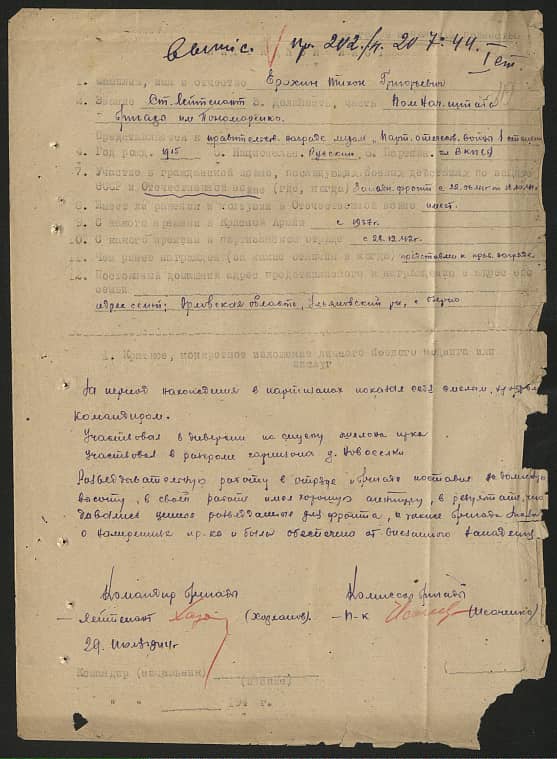 высыл. пр. 202/п. 20 7.44. I ст.
1. Фамилия, имя и отчество Ерохин Тихон Григорьевич
2. Звание Ст. Лейтенант 3. Должность, часть Пом. нач. штаба
бригада им Пономаренко.
Представляется к правительств. награде медаль „Парт. отечеств. войны" I степени
4. Год рожд. 1915 5. Национальн. Русский 6. Партийн. ВКП(б)
7. Участие в гражданской войне, последующих боевых действиях по защите
СССР и Отечественной войне (где, когда) Западн. фронт с
8. Имеет ли ранения и контузии в Отечественной войне имеет.
9. С какого времени в Красной Армии с 1937г.
10. С какого времени в партизанском отряде с 28.12.42г.
11. Чем ранее награжден (за какие отличия и когда) представлен к прав. награде
12. Постоянный домашний адрес представляемого к награждению и адрес его
семьи
адрес семьи: Орловская область, Ульяновский р-н, с
1. Краткое, конкретное изложение личного боевого подвига или
заслуг
За период нахождения в партизанах показал себя смелым,
командиром.
Участвовал в диверсии по спуску эшелона пр-ка
Участвовал в разгроме гарнизона д. Новоселки
Разведывательную работу в отряде и бригаде поставил на должную
высоту, в своей работе имел хорошую агентуру, в результате, что
давались ценные разведданные для фронта, а также бригада
о намерениях пр-ка и была обеспечена от внезапного нападения
Командир бригады Комиссар бригады
Лейтенант (Хазманов). П-к (Исаченко)
29. Июля 1944г
Командир (начальник)
(звание)
" " 194 г.